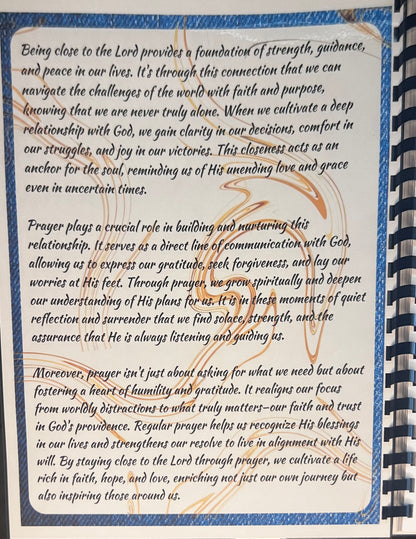 Being close to the Lord provides a foundation of strength, guidance,
and peace in our lives. It's through this connection that we can
navigate the challenges of the world with faith and purpose,
knowing that we are never truly alone. When we cultivate a deep
relationship with God, we gain clarity in our decisions, comfort in
our struggles, and joy in our victories. This closeness acts as an
anchor for the soul, reminding us of His unending love and grace
even in uncertain times.
Prayer plays a crucial role in building and nurturing this
relationship. It serves as a direct line of communication with God,
allowing us to express our gratitude, seek forgiveness, and lay our
worries at His feet. Through prayer, we grow spiritually and deepen
our understanding of His plans for us. It is in these moments of quiet
reflection and surrender that we find solace, strength, and the
assurance that He is always listening and guiding us.
Moreover, prayer isn't just about asking for what we need but about
fostering a heart of humility and gratitude. It realigns our focus
from worldly distractions to what truly matters—our faith and trust
in God's providence. Regular prayer helps us recognize His blessings
in our lives and strengthens our resolve to live in alignment with His
will. By staying close to the Lord through prayer, we cultivate a life
rich in faith, hope, and love, enriching not just our own journey but
also inspiring those around us.